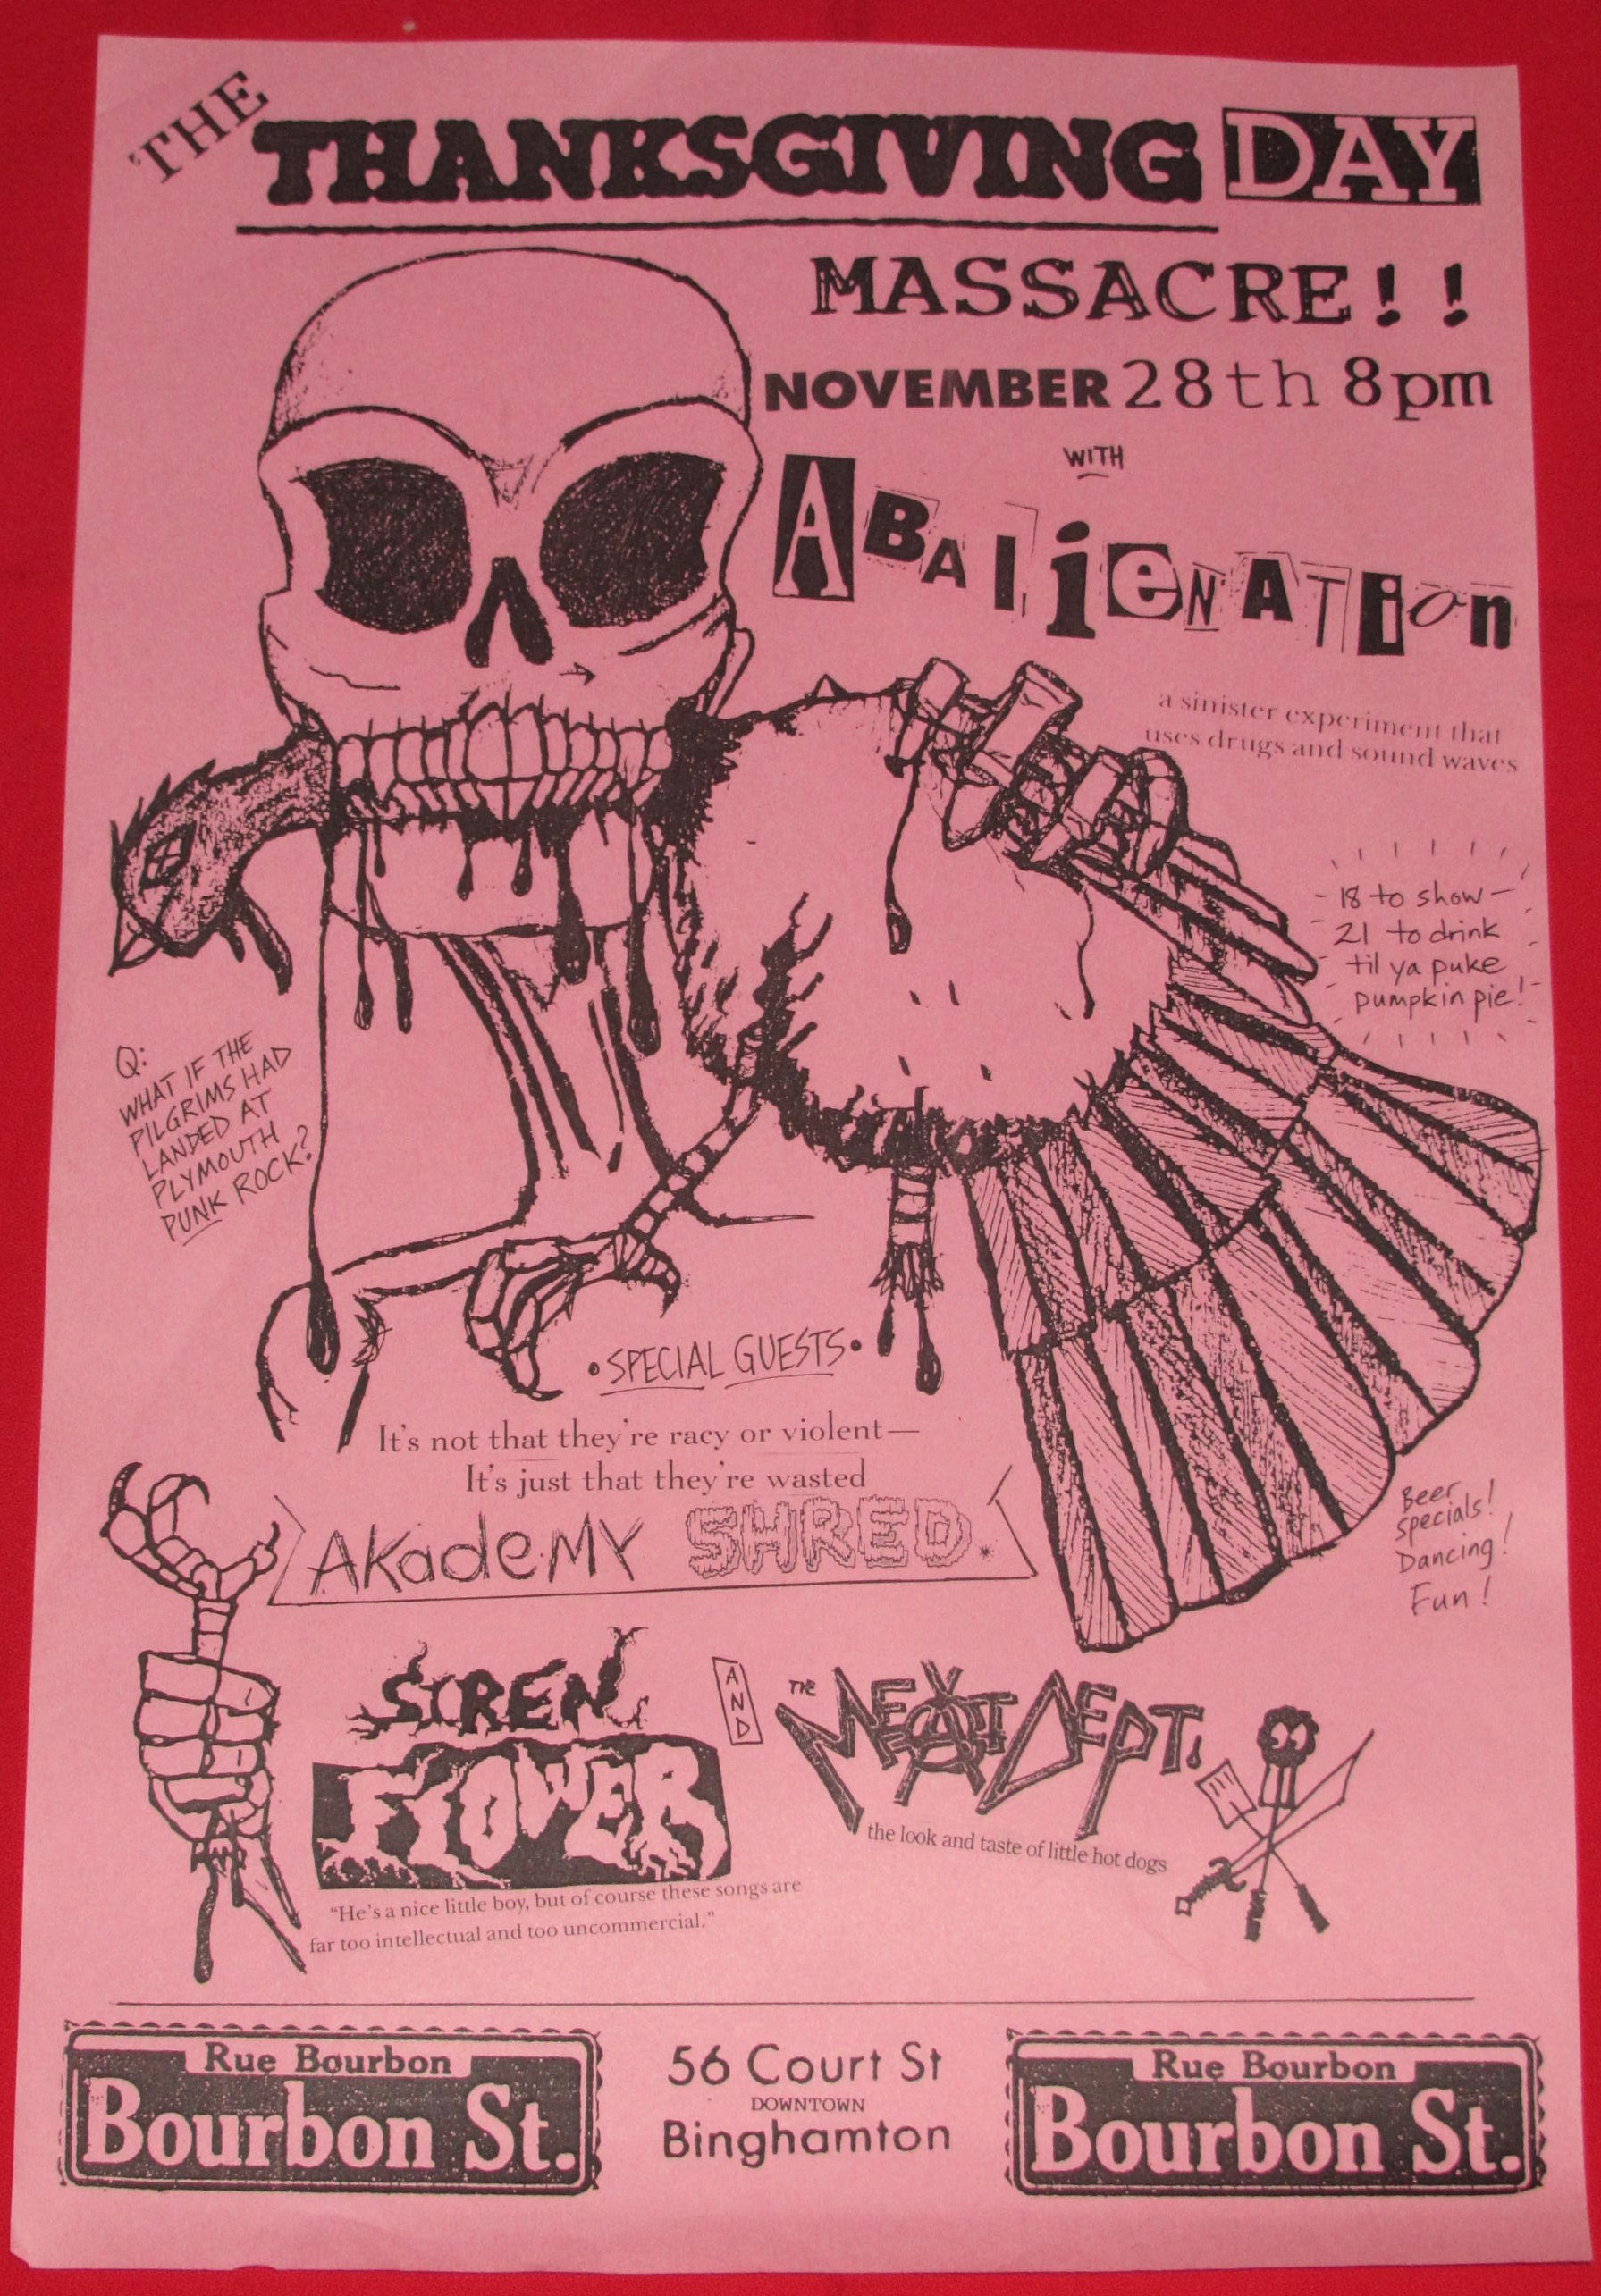 THE
THANKSGIVING DAY
MASSACRE!!
NOVEMBER 28th 8pm
WITH
ABAlienATion
a sinister experiment that
uses drugs and sound waves
-18 to show-
21 to drink
til ya puke
pumpkin pie!
Q:
WHAT IF THE
PILGRIMS HAD
LANDED AT
PLYMOUTH
PUNK ROCK?
•SPECIAL GUESTS•
It's not that they're racy or violent—
It's just that they're wasted
AKadeMY SHRED
Beer
specials!
Dancing!
Fun!
SIREN
FLOWER
AND
THE MEAT DEPT.
the look and taste of little hot dogs
"He's a nice little boy, but of course these songs are
far too intellectual and too uncommercial."
Rue Bourbon
Bourbon St.
56 Court St
DOWNTOWN
Binghamton
Rue Bourbon
Bourbon St.